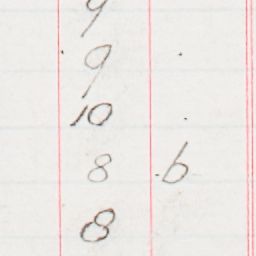 9
9
10
8 6
8